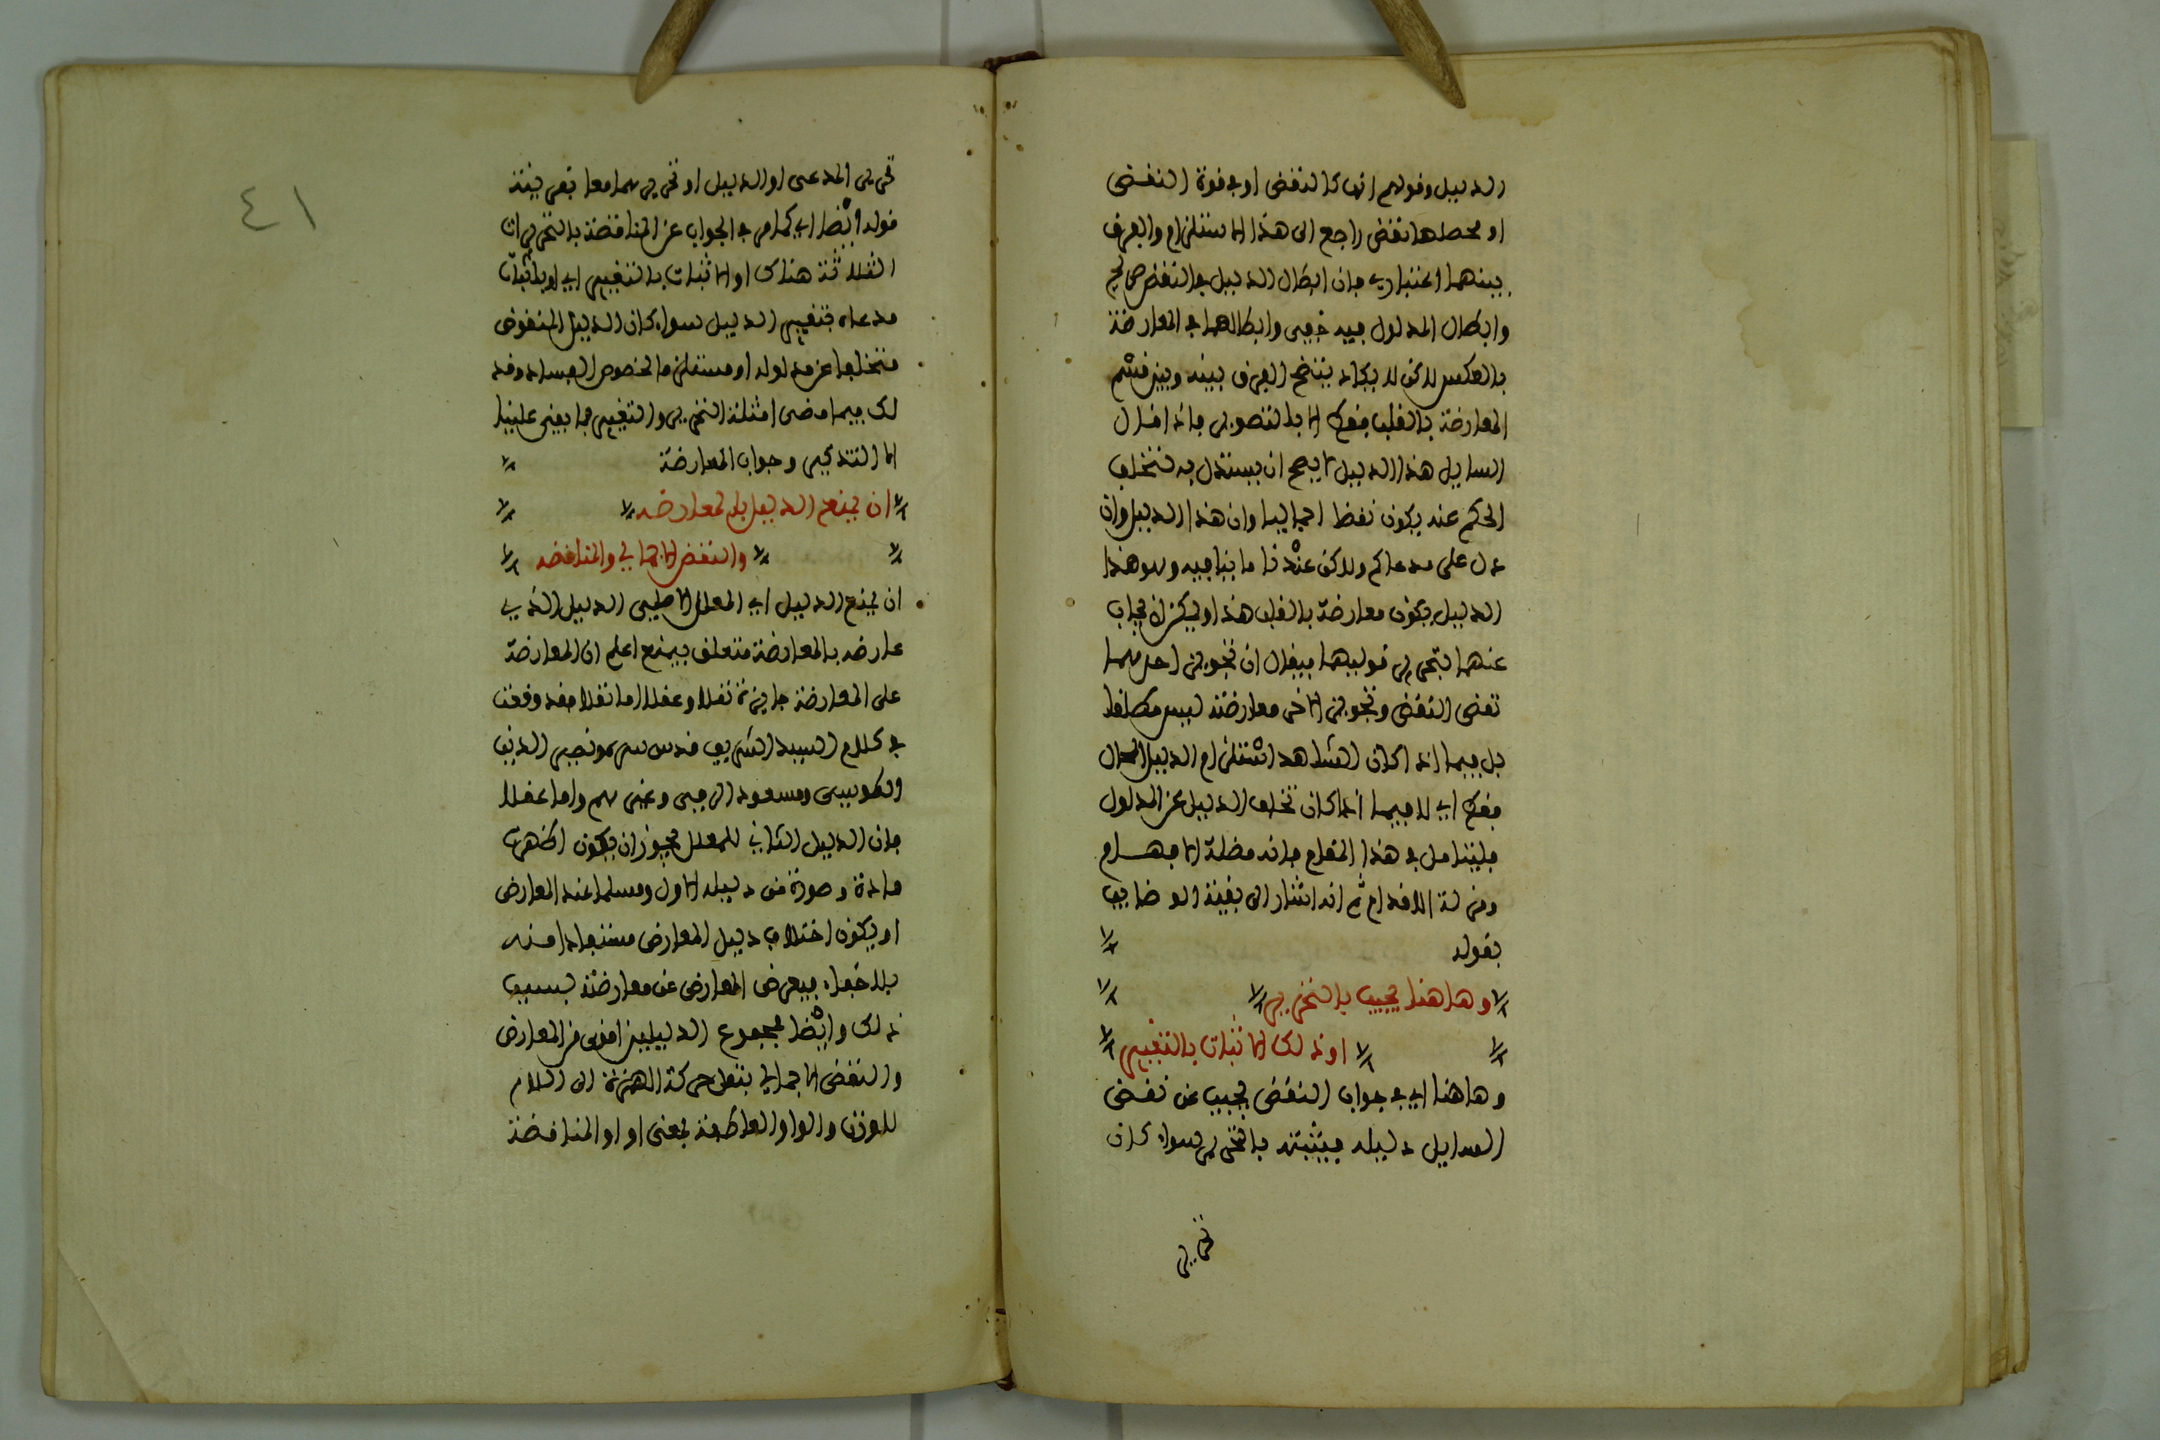 الدليل وقولهم انها كالنقض او في قوة النقض
او محصلها نقض راجع الى هذا الاستلزام والفرق
بينهما اعتباري فان ابطال الدليل في النقض صريح
وابطال المدلول فيه خفي وابطالهما في المعارضة
بالعكس لاكن لا يكاد يتضح الفرق بينه وبين قسم
المعارضة بالقلب فقط الا بالتصوير فاذا قال
السايل هذا الدليل لا يصح ان يستدل به لتخلف
الحكم عنه يكون نقضا اجماليا وان هذا الدليل وان
دل على مدعاكم ولاكن عندنا ما ينافيه وهو هذا
الدليل يكون معارضة بالقلب هذا وليكن ان يجاب
عنهما بتحرير قوليهما فيقال ان تجويز احدهما
نقض النقض وتجويز الاخر معارضته ليس مطلقا
بل فيما اذا كان الشاهد استلزام الدليل المحال
فقط اي لا فيما اذا كان تخلف الدليل عن المدلول
فليتامل في هذا المقام فانه مضلة الافهام
ومزلة الاقدام ثم انه اشار الى بقية الوضايف
بقوله
وهاهنا يجيب بالتحرير
او ذلك الاثبات بالتغيير
وهاهنا اي في جواب النقض يجيب عن نقض
السايل دليله فيثبته بالتحرير سواء كان
تحرير
٤١
تحرير المدعى او الدليل او تحريرهما معا بقرينة
قوله ايضا اي كما مر في الجواب عن المناقضة بالتحريرات
الثلاثة هناك او الاثبات بالتغيير اي او باثبات
مدعاه بتغيير الدليل سواء كان الدليل المنقوض
متخلفا عن مدلوله او مستلزما لخصوص الفساد وقد
لك فيما مضى امثلة التحرير والتغيير فما بقي علينا
الا التذكير وجواب المعارضة
ان يمنع الدليل بالمعارضه
والنقض الاجمالي والمناقضه
ان يمنع الدليل اي المعلل الاصلي الدليل الذي
عارضه بالمعارضة متعلق بيمنع اعلم ان المعارضة
على المعارضة جايزة نقلا وعقلا اما نقلا فقد وقعت
في كلام السيد الشريف قدس سره ونصير الدين
والطوسي ومسعود الرومي وغيرهم واما عقلا
فان الدليل الثاني للمعلل يجوز ان يكون اظهر
مادة وصورة من دليله الاول ومسلما عند المعارض
او يكون اختلاف دليل المعارض مستفادا منه
بلا خفاء فيعرض المعارض عن معارضته بسبب
ذلك وايضا مجموع الدليلين اقوى من المعارض
والنقض الاجمالي بنقل حركة الهمزة الى اللام
للوزن والواو العاطفة بمعنى او او المناقضة